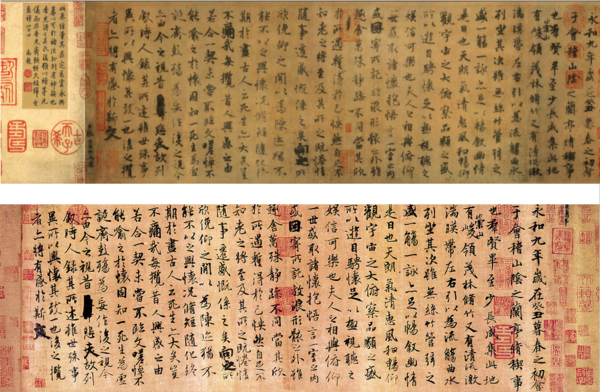 永和九年歲在癸丑暮春之初會
于會稽山陰之蘭亭脩稧事
也群賢畢至少長咸集此地
有崇山峻領茂林脩竹又有清流激
湍暎帶左右引以為流觴曲水
列坐其次雖無絲竹管弦之
盛一觴一詠亦足以暢敘幽情
是日也天朗氣清惠風和暢仰
觀宇宙之大俯察品類之盛
所以遊目騁懷足以極視聽之
娛信可樂也夫人之相與俯仰
一世或取諸懷抱悟言一室之內
或因寄所託放浪形骸之外雖
趣舍萬殊靜躁不同當其欣
於所遇暫得於己怏然自足不
知老之將至及其所之既惓情
隨事遷感慨係之矣向之所
欣俛仰之閒以為陳迹猶不
能不以之興懷況脩短隨化終
期於盡古人云死生亦大矣豈
不痛哉每攬昔人興感之由
若合一契未嘗不臨文嗟悼不
能喻之於懷固知一死生為虛
誕齊彭殤為妄作後之視今
亦由今之視昔悲夫故列
敘時人錄其所述雖世殊事
異所以興懷其致一也後之攬
者亦將有感於斯文
永和九年歲在癸丑暮春之初會
于會稽山陰之蘭亭脩稧事
也群賢畢至少長咸集此地
有崇山峻領茂林脩竹又有清流激
湍暎帶左右引以為流觴曲水
列坐其次雖無絲竹管弦之
盛一觴一詠亦足以暢敘幽情
是日也天朗氣清惠風和暢仰
觀宇宙之大俯察品類之盛
所以遊目騁懷足以極視聽之
娛信可樂也夫人之相與俯仰
一世或取諸懷抱悟言一室之內
或因寄所託放浪形骸之外雖
趣舍萬殊靜躁不同當其欣
於所遇暫得於己怏然自足不
知老之將至及其所之既惓情
隨事遷感慨係之矣向之所
欣俛仰之閒以為陳迹猶不
能不以之興懷況脩短隨化終
期於盡古人云死生亦大矣豈
不痛哉每攬昔人興感之由
若合一契未嘗不臨文嗟悼不
能喻之於懷固知一死生為虛
誕齊彭殤為妄作後之視今
亦由今之視昔悲夫故列
敘時人錄其所述雖世殊事
異所以興懷其致一也後之攬
者亦將有感於斯文